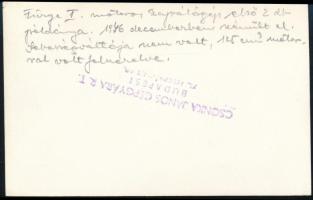 Fürge I. motoros szajrólógép első 2 db
példánya. 1946 decemberben készült el.
Sebességváltója nem volt, 125 cm³ motor-
ral volt felszerelve.
CSONKA JÁNOS GÉPGYÁRA R. T.
BUDAPEST